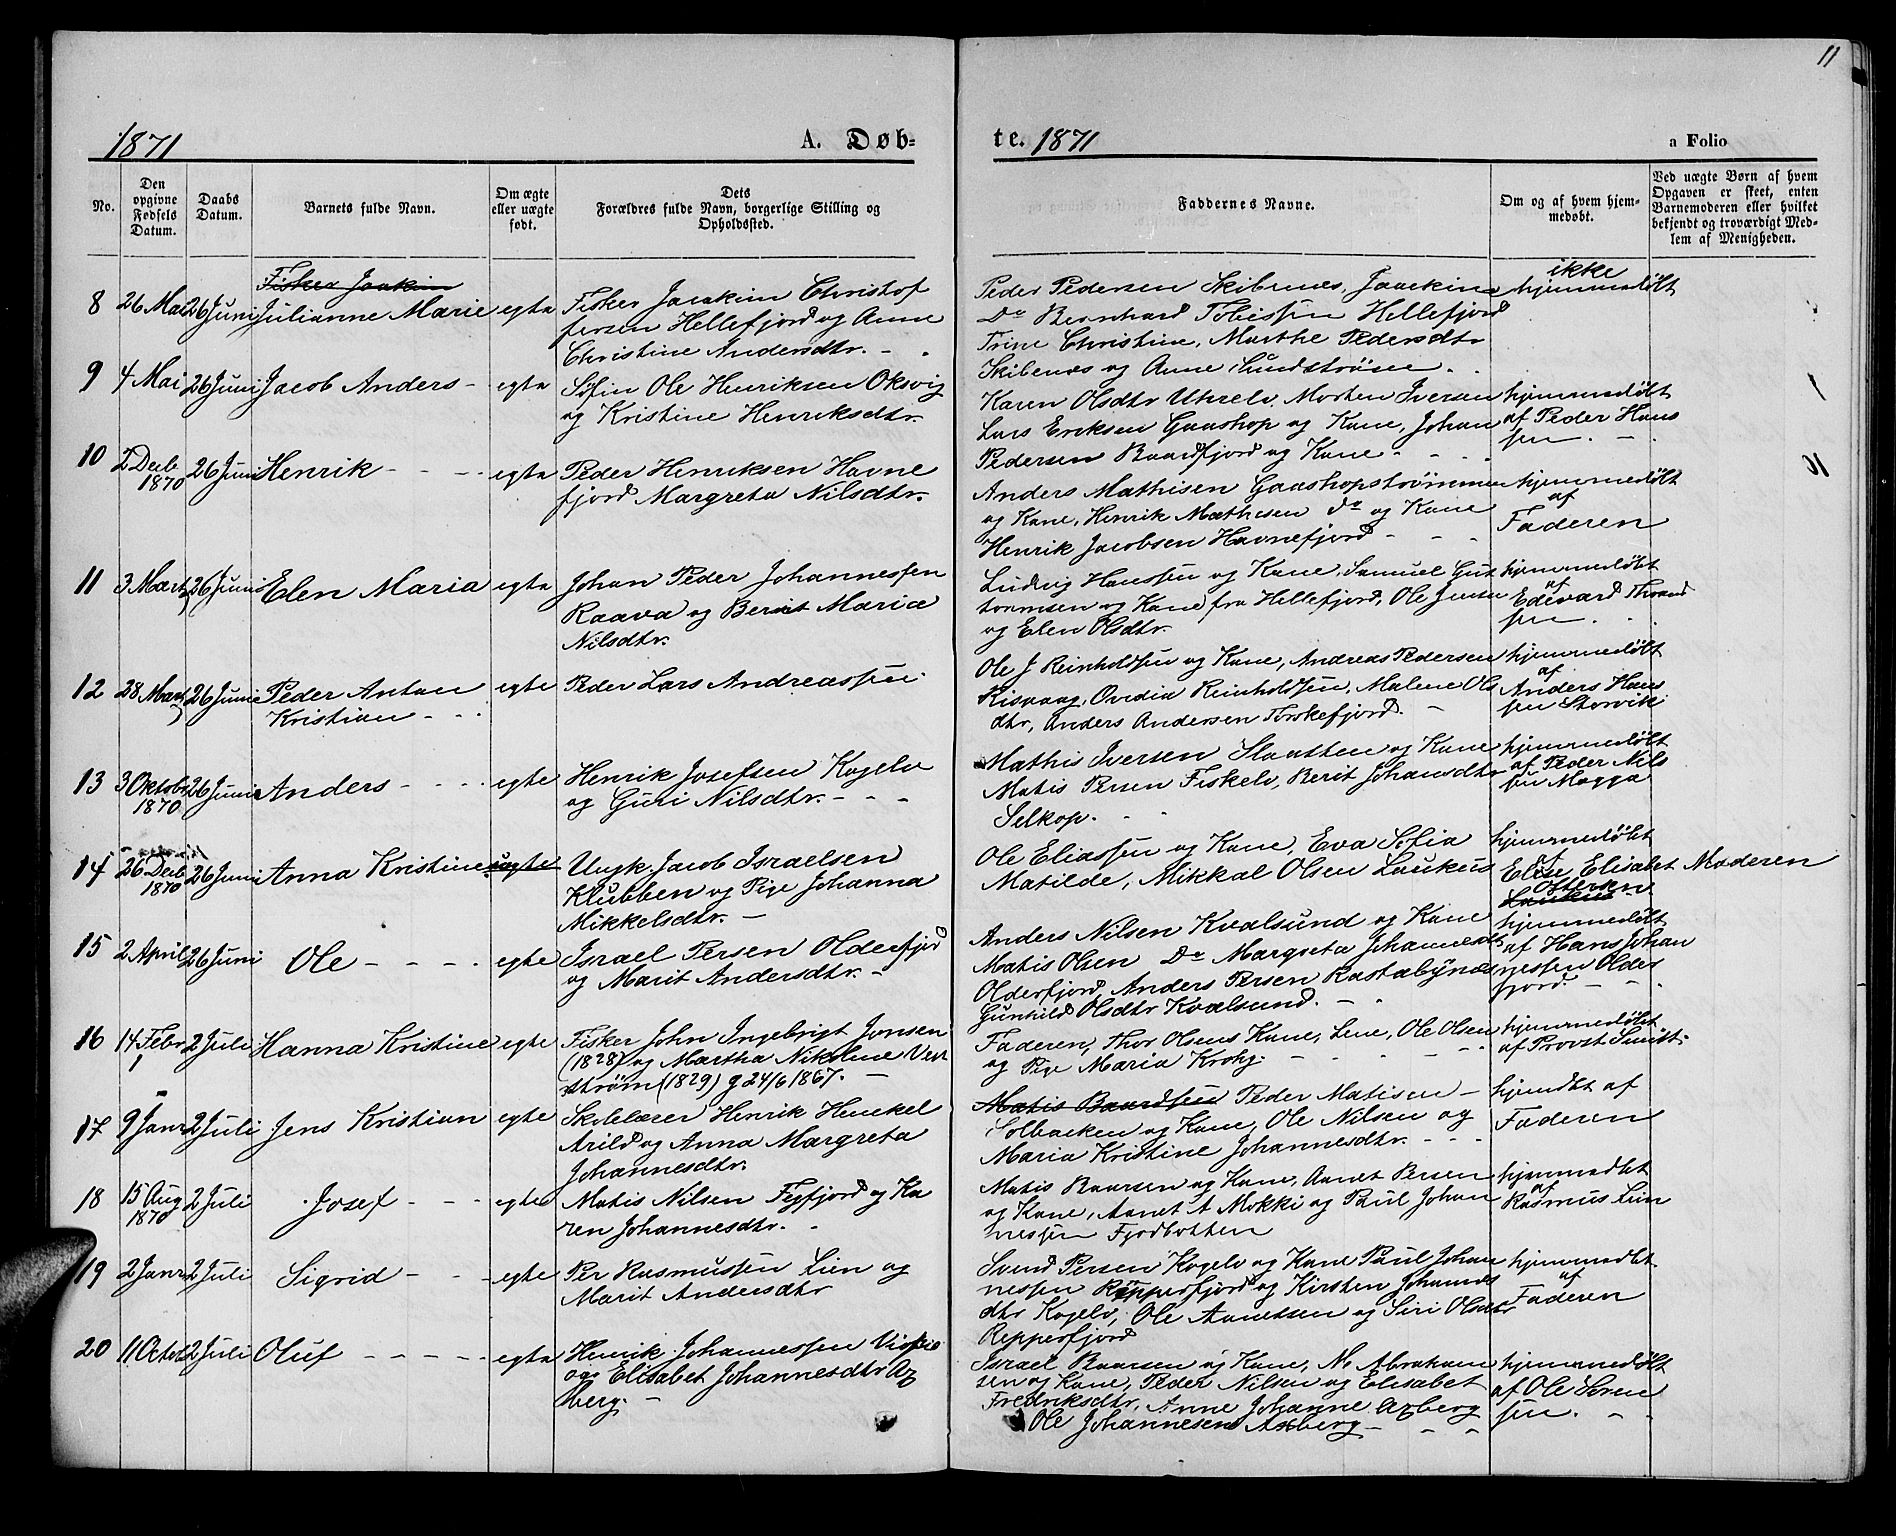 11
1871
A. Døb-
te. 1871
a Folio
No.
Den opgivne Fødsels Datum.
Daabs Datum.
Barnets fulde Navn.
Om ægte eller uægte født.
Dets Forældres fulde Navn, borgerlige Stilling og Opholdssted.
Faddernes Navne.
Om og af hvem hjemmedøbt.
Ved uægte Børn af hvem Opgaven er skeet, enten Barnemoderen eller hvilket bekjendt og troværdigt Medlem af Menigheden.
Fisker Joakim
8 26 Mai 26 Juni Julianne Marie egte
Fisker Joakim Christof
fersen Hellefjord og Anne
Christine Andersdtr.
Peder Pedersen Skibenes, Joackim
Do Bernhard Tobissen Hellefjord
Trine Christine, Marthe Pedersdtr
Skibenæs og Anne Lundstrøm.
ikke
hjemmedøbt
9 4 Mai 26 Juni Jacob Anders egte
Søfin Ole Henriksen Oksvig
og Kristine Henriksdtr.
Karen Olsdtr Uhrelv, Morten Iversen
Lars Eriksen Gaashop og Kone, Johan
Pedersen Baardfjord og Kone
hjemmedøbt
af Peder Hans
sen.
10 2 Decb 1870 26 Juni Henrik egte
Peder Henriksen Havne
fjord Margreta Nilsdtr.
Anders Mathisen Gaashopstrømmen
og Kone, Henrik Mathisen do og Kone
Henrik Jacobsen Havnefjord
hjemmedøbt
af
Faderen
11 3 Marts 26 Juni Elen Maria egte
Johan Peder Johannessen
Raava og Berit Maria
Nilsdtr.
Ludvig Hanssen og Kone, Samuel Gut
tormsen og Kone fra Hellefjord, Ole Jensen
og Elen Olsdtr.
hjemmedøbt
af
Edevard Thrond
sen.
12 28 Marts 26 Juni Peder Anton
Kristian egte
Peder Lars Andreassen
Ole J Reinholdsen og Kone, Andreas Pedersen
Risvaag, Ovedia Reinholdsen, Malene Ols
dtr, Anders Andersen Torskefjord.
hjemmedøbt
af
Anders Hans
sen Storvik
13 3 Oktober 1870 26 Juni Anders egte
Henrik Josefsen Kogelv
og Guri Nilsdtr.
Mathis Iversen Slaatten og Kone
Matis Persen Fiskelv, Berit Johansdtr
Selkop.
hjemmedøbt
af Peder Nils
sen Mogga
14 26 Decb 1870 26 Juni Anna Kristine uægte
Ungk. Jacob Israelsen
Klubben og Pige Johanna
Mikkelsdtr.
Ole Eliassen og Kone, Eva Sofia
Matilde, Mikkal Olsen Laukus
hjemmedøbt
af
Elen Elisabet Moderen
Laukus
15 2 April 26 Juni Ole egte
Israel Persen Olderfjord
og Marit Andersdtr.
Anders Nilsen Kvalsund og Kone
Matis Olsen Do Margreta Johannesdt
Olderfjord, Anders Persen Rastabynes
Gunhild Olsdtr Kvalsund.
hjemmedøbt
af Hans Johan
nessen Older
fjord.
16 14 Febr 2 Juli Hanna Kristine egte
Fisker John Ingebrigt Jonsen
(1828) og Martha Nikoline Ves
strøm (1829) g 24/6 1867.
Faderen, Thor Olsens Kone, Lene, Ole Olsen
og Pige Maria Krohg.
hjemmedøbt
af Provst Smitt.
17 9 Janr 2 Juli Jens Kristian egte
Skolelærer Henrik Henckel
Arild og Anna Margreta
Johannesdtr.
Matis Baardsen Peder Matisen
Solbacken og Kone, Ole Nilsen og
Maria Kristine Johannesdtr.
hjemdbt af
Faderen
18 15 Aug 1870 2 Juli Josef egte
Matis Nilsen Fegfjord og Ka
ren Johannesdtr.
Matis Baarsen og Kone, Aanet Persen
og Kone, Aanet A Mokki og Paul Johan
nessen Fjordbotten
hjemmedbt
af
Rasmus Lien
19 2 Janr 2 Juli Sigrid egte
Per Rasmussen Lien og
Marit Andersdtr
Svend Persen Kogelv og Kone Paul Johan
nessen Repperfjord og Kirsten Johannes
dtr Kogelv, Ole Aanetsen og Siri Olsdtr
Repperfjord
hjemmedbt
af
Faderen
20 11 Octob 2 Juli Oluf egte
Henrik Johannessen
og Elisabet Johannesdtr Ax
berg.
Israel Baarsen og Kone, N. Abraham
sen og Kone, Peder Nilsen og Elisabet
Fredriksdtr, Anne Johanne Axberg
Ole Johannesen Axberg
hjemmedøbt
af Ole Soren
sen.